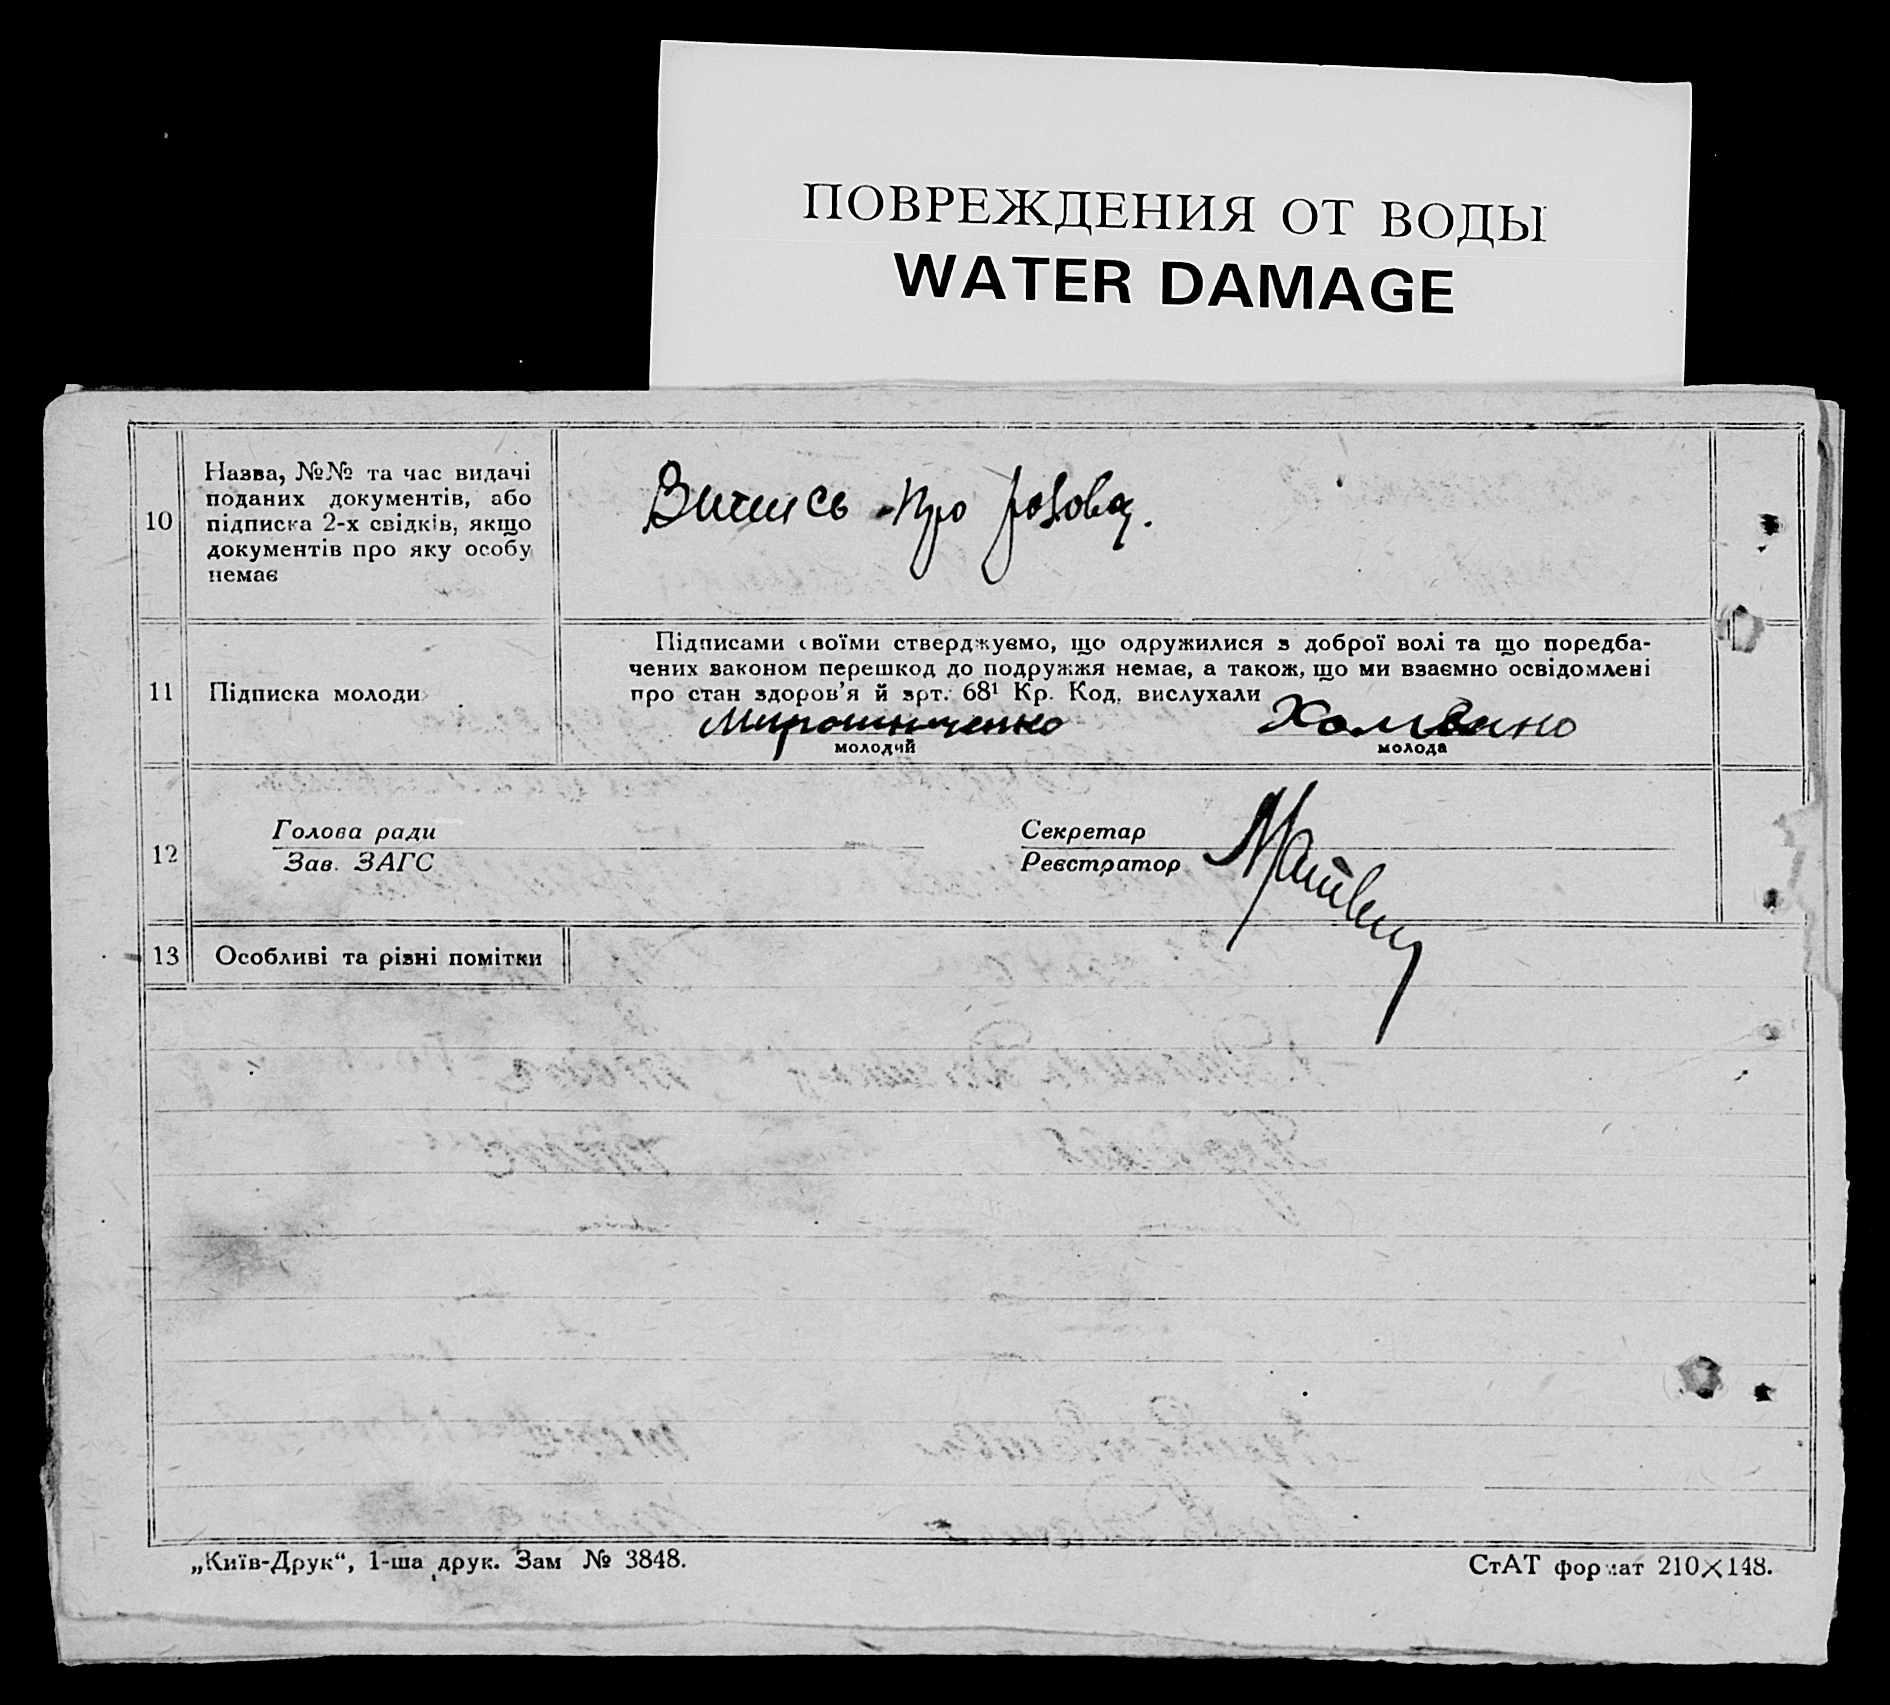 ПОВРЕЖДЕНИЯ ОТ ВОДЫ
WATER DAMAGE
10
Назва, №№ та час видачі
поданих документів, або
підписка 2-х свідків, якщо
документів про яку особу
немає
Випись про
11
Підписка молоди
Підписами своїми стверджуємо, що одружилися з доброї волі та що поредба-
чених законом перешкод до подружжя немає, а також, що ми взаємно освідомлені
про стан здоров'я й арт. 68¹ Кр. Код. вислухали
Мирошниченко
молодий
молода
12
Голова ради
Зав. ЗАГС
Секретар
Реєстратор
13
Особливі та різні помітки
„Київ-Друк“, 1-ша друк. Зам № 3848.
СтАТ формат 210×148.